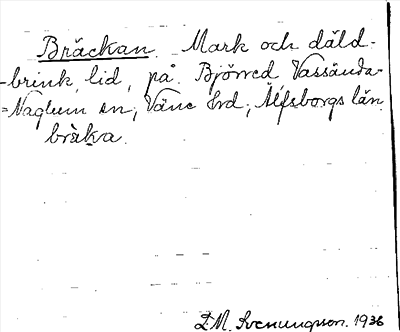 Bräckan. Mark och däld-
brink, lid, på Björred Vassända-
=Naglum sn; Väne hrd; Älfsborgs län.
bràka.
L.M. Svenungsson. 1936